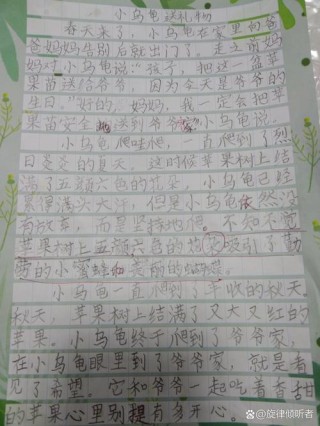 小乌龟送礼物
春天来了，小乌龟在家里向爸
爸妈妈告别后就出门了。走之前妈
妈对小乌龟说"孩子，把这一盆苹
果苗送给爷爷，因为今天是爷爷的
生日。"好的，妈妈，我一定会把苹
果苗安全地送到爷爷家。小乌龟说。
小乌龟爬呀爬，一直爬到了烈
日炎炎的夏天。这时候苹果树上结
满了五颜六色的花朵，小乌龟已经
累得满头大汗，但是小乌龟依然没
有放弃，而是坚持地爬。不知不觉
苹果树上五颜六色的花又吸引了勤
劳的小蜜蜂和美丽的蝴蝶。
小乌龟一直爬到了丰收的秋天。
秋天，苹果树上结满了又大又红的
苹果。小乌龟终于爬到了爷爷家，
在小乌龟眼里到了爷爷家，就是看
见了希望。它和爷爷一起吃着香甜
的苹果心里别提有多开心。
@旋律倾听者